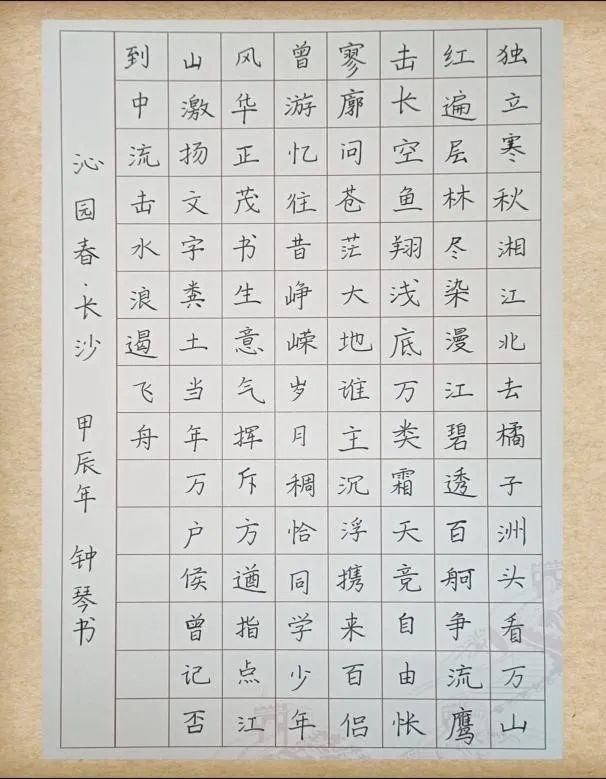 独立寒秋湘江北去橘子洲头看万山
红遍层林尽染漫江碧透百舸争流鹰
击长空鱼翔浅底万类霜天竞自由怅
寥廓问苍茫大地谁主沉浮携来百侣
曾游忆往昔峥嵘岁月稠恰同学少年
风华正茂书生意气挥斥方遒指点江
山激扬文字粪土当年万户侯曾记否
到中流击水浪遏飞舟
沁园春·长沙 甲辰年 钟琴书